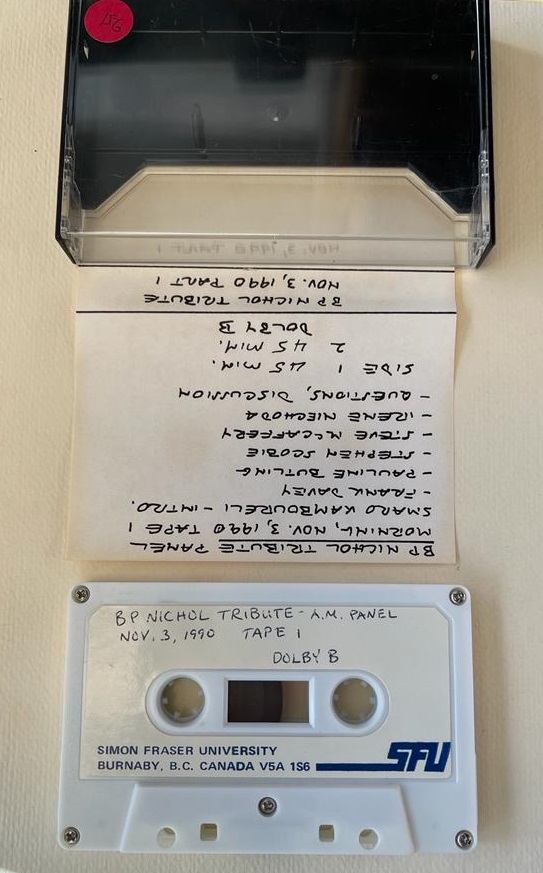 SFU
SIMON FRASER UNIVERSITY
BURNABY, B.C. CANADA V5A 1S6
DOLBY B
BP NICHOL TRIBUTE - A.M. PANEL
NOV. 3, 1990 TAPE 1
BP NICHOL TRIBUTE PANEL
MORNING, NOV. 3, 1990 TAPE 1
SMARO KAMBOURELI - INTRO.
- FRANK DAVEY
- PAULINE BUTLING
- STEPHEN SCOBIE
- STEVE MCCAFFERY
- IRENE NIECHODA
- QUESTIONS, DISCUSSION
SIDE 1 45 MIN.
2 45 MIN.
DOLBY B
BP NICHOL TRIBUTE
NOV. 3, 1990 PART 1
NOV. 3, 1990 PART 1